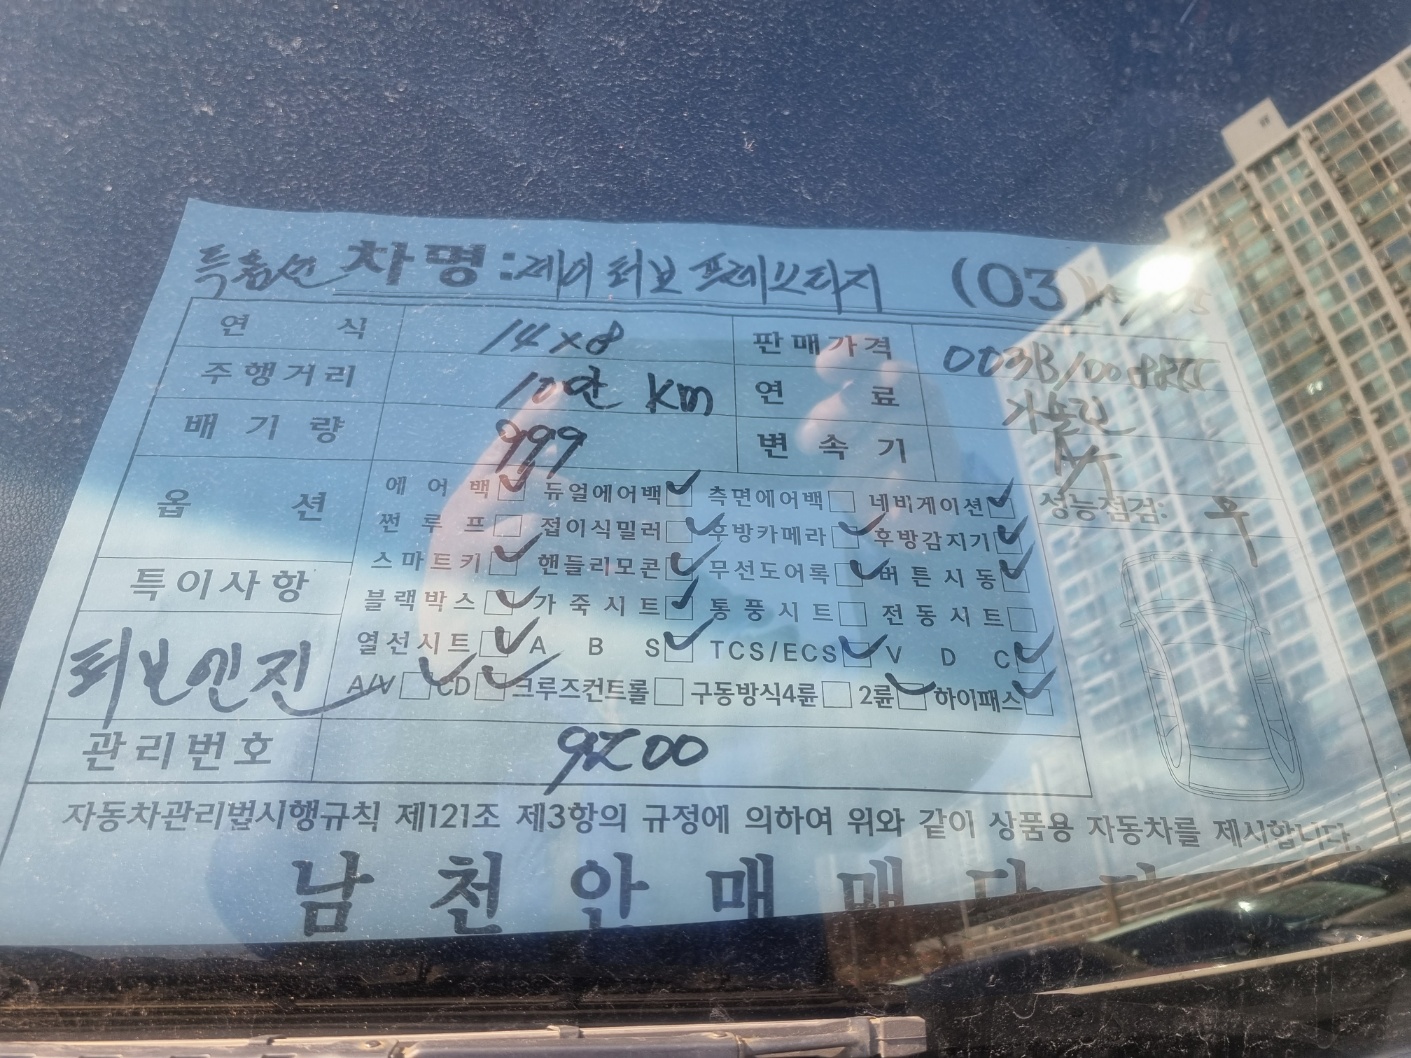 특옵션 차명: 레이 터보 프레스티지 (03)
연 식 14×8 판매가격
주행거리 10만 Km 연 료 가솔린
배기량 999 변속기 A/T
옵 션 에어백 듀얼에어백 측면에어백 네비게이션 성능점검: 무
썬루프 접이식밀러 후방카메라 후방감지기
스마트키 핸들리모콘 무선도어록 버튼시동
특이사항 블랙박스 가죽시트 통풍시트 전동시트
터보엔진 열선시트 A B S TCS/ECS V D C
A/V CD 크루즈컨트롤 구동방식4륜 2륜 하이패스
관리번호
자동차관리법시행규칙 제121조 제3항의 규정에 의하여 위와 같이 상품용 자동차를 제시합니다.
남천안매매단지